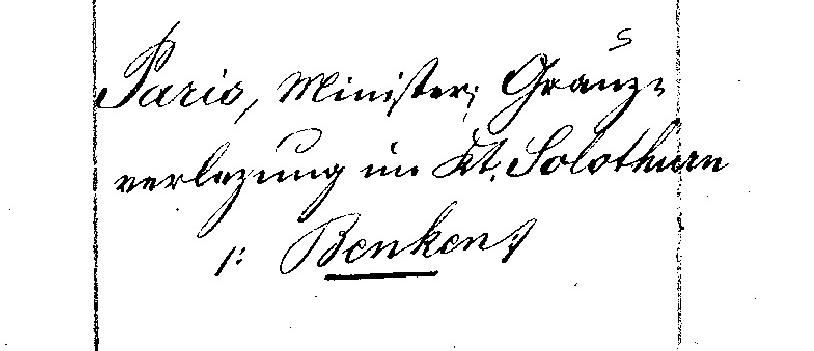 Paris, Minister; Gränz-
verlezung im Kt. Solothurn
/: Benken :/